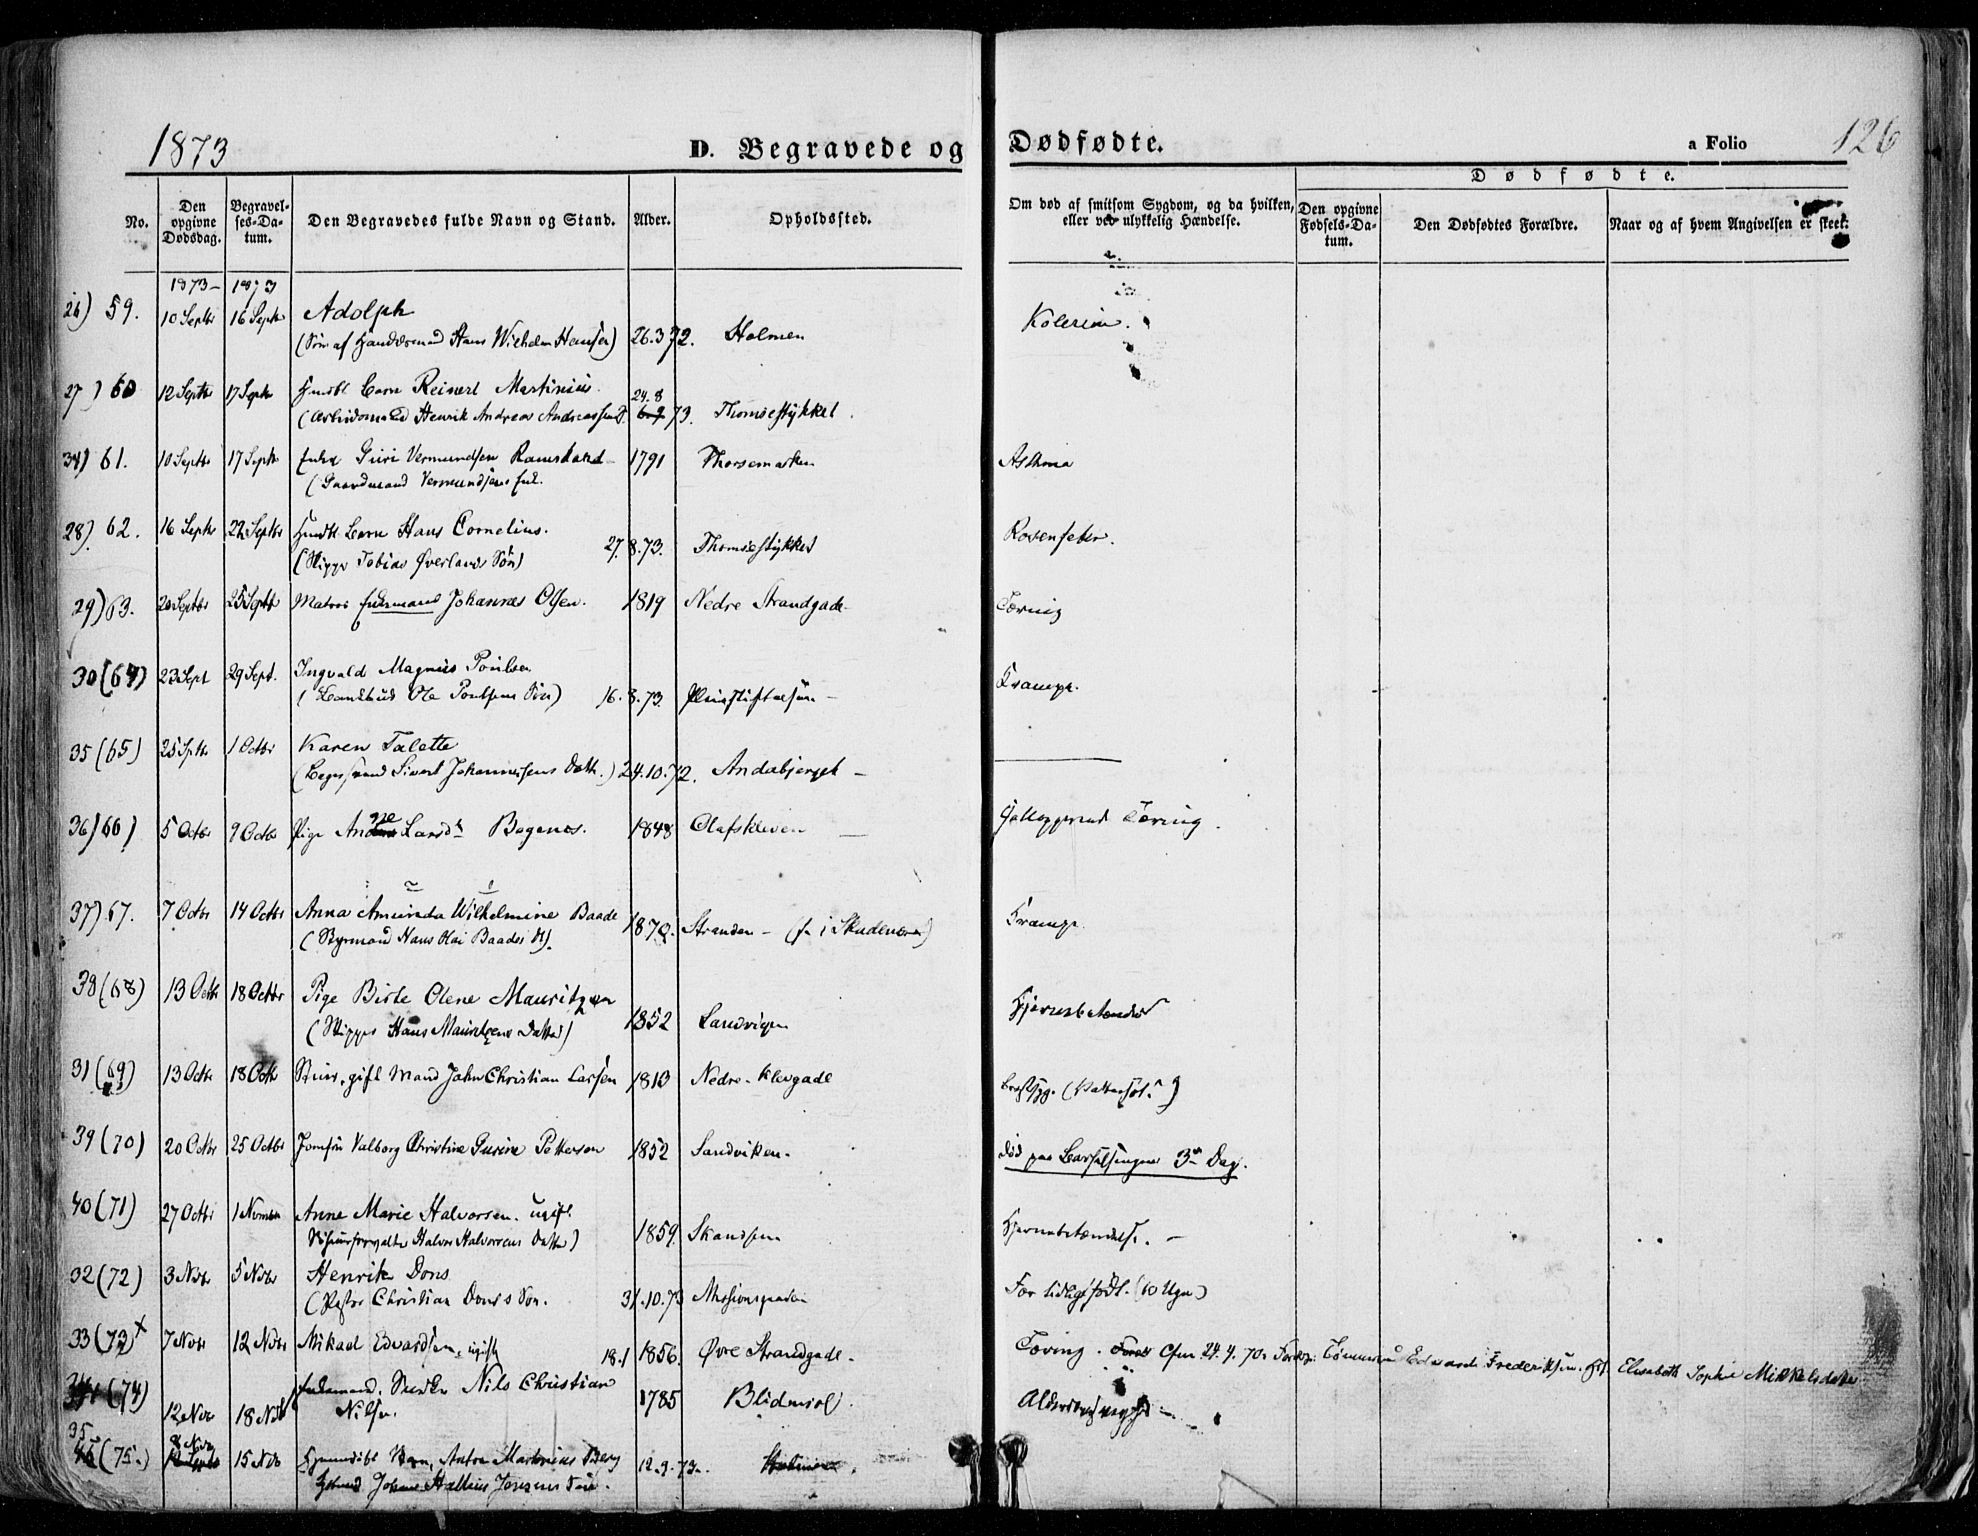 1873
D. Begravede og Dødfødte.
a Folio 126
Dødfødte.
No.
Den opgivne Dødsdag.
Begravelses-Datum.
Den Begravedes fulde Navn og Stand.
Alder.
Opholdssted.
Om død af smitsom Sygdom, og da hvilken, eller ved ulykkelig Hændelse.
Den opgivne Fødsels-Datum.
Den Dødfødtes Forældre.
Naar og af hvem Angivelsen er skeet.
1873 1873
26) 59. 10 Septbr 16 Septb Adolph
(Søn af Hans Wilhelm Hansen) 26.3.72. Holmen Kolerine.
27) 60 12 Septbr 17 Septb Barn Reinert Martinius
24.8
(Arbeidsmand Henrik Andreas 73. Thomsestykket
34) 61. 10 Septbr 17 Septb Enke Guri Vermundsen 1791 Asthma
(Gaardmand Vermundsens Enke
28) 62. 16 Septbr 22 Septbr Barn Hans Cornelius. Rosenfeber.
(Skipper Tobias Øverlands Søn) 27.8.73. Thomsestykket
29) 63. 20 Septbr 25 Septbr Matros Johannes Olsen. 1819 Nedre Strandgade Tæring
30 (64) 23 Sept 29 Sept. Ingvald Magnus Poulsen
(Ole Poulsens Søn) 16.8.73. Krampe.
35 (65) 25 Septbr 1 Octbr Karen Talette
(Sivert Johannesens Datter) 24.10.72. Andabjerget
36) 66) 5 Octbr 9 Octbr Pige 1848 Olafskleven Galloperende Tæring.
37) 67. 7 Octbr 14 Octbr Anna Amunda Wilhelmine Baade 1872. Stranden (f. i Skudenes) Krampe
(Styrmand Hans Baades D.)
38 (68) 13 Octb 18 Octbr Pige Birte Olene Mauritzen
(Skipper Hans Mauritzens Datter) 1852 Sandvigen Hjernebetændelse
31 (69) 13 Octbr 18 Octb gift Mand John Christian Larsen 1813 Nedre Klevgade Brystsyg.
39 (70) 20 Octbr 25 Octbr Jomfru Valborg Christine Gurine Pettersen 1852 Sandviken. Død paa Barselsengens 3die Dag.
40 (71) 27 Octbr 1 Novbr Anne Marie Halvorsen. ugift.
Halvor Halvorsens Datter) 1859. Skandsen Hjernebetændelse.
32 (72) 3 Novbr 5 Novbr Henrik Dons
(Pastor Christian Dons's Søn. 31.10.73 Missionsgaden For tidlig født. (10 Uger)
33 (73) 7 Novbr 12 Novbr Mikael Edvardsen, ugift 18.1 1856. Øvre Strandgade. Tæring. Cfm. 24.4.70. Edvard Frederiksen. Elisabeth Sophie Mikkelsdatter
34 (74) 12 Nov 18 Novb Enkemand. Nils Christian
Nilsen. 1785 Blidensol Alderdomssvaghed
35 (75.) 8 Nov 15 Nvb Barn, Anton Martinius Berg 12.9.73.
Johan Søn.